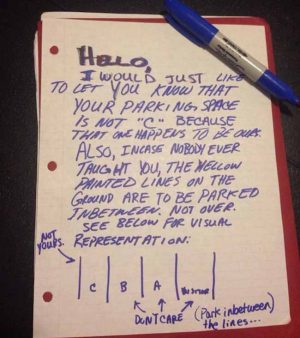 HELLO,
I WOULD JUST LIKE
TO LET YOU KNOW THAT
YOUR PARKING SPACE
IS NOT "C" BECAUSE
THAT ONE HAPPENS TO BE OURS.
ALSO, INCASE NOBODY EVER
TAUGHT YOU, THE YELLOW
PAINTED LINES ON THE
GROUND ARE TO BE PARKED
INBETWEEN. NOT OVER.
SEE BELOW FOR VISUAL
REPRESENTATION:
NOT
YOURS.
C B A
DON'T CARE
(Park inbetween
the lines...)